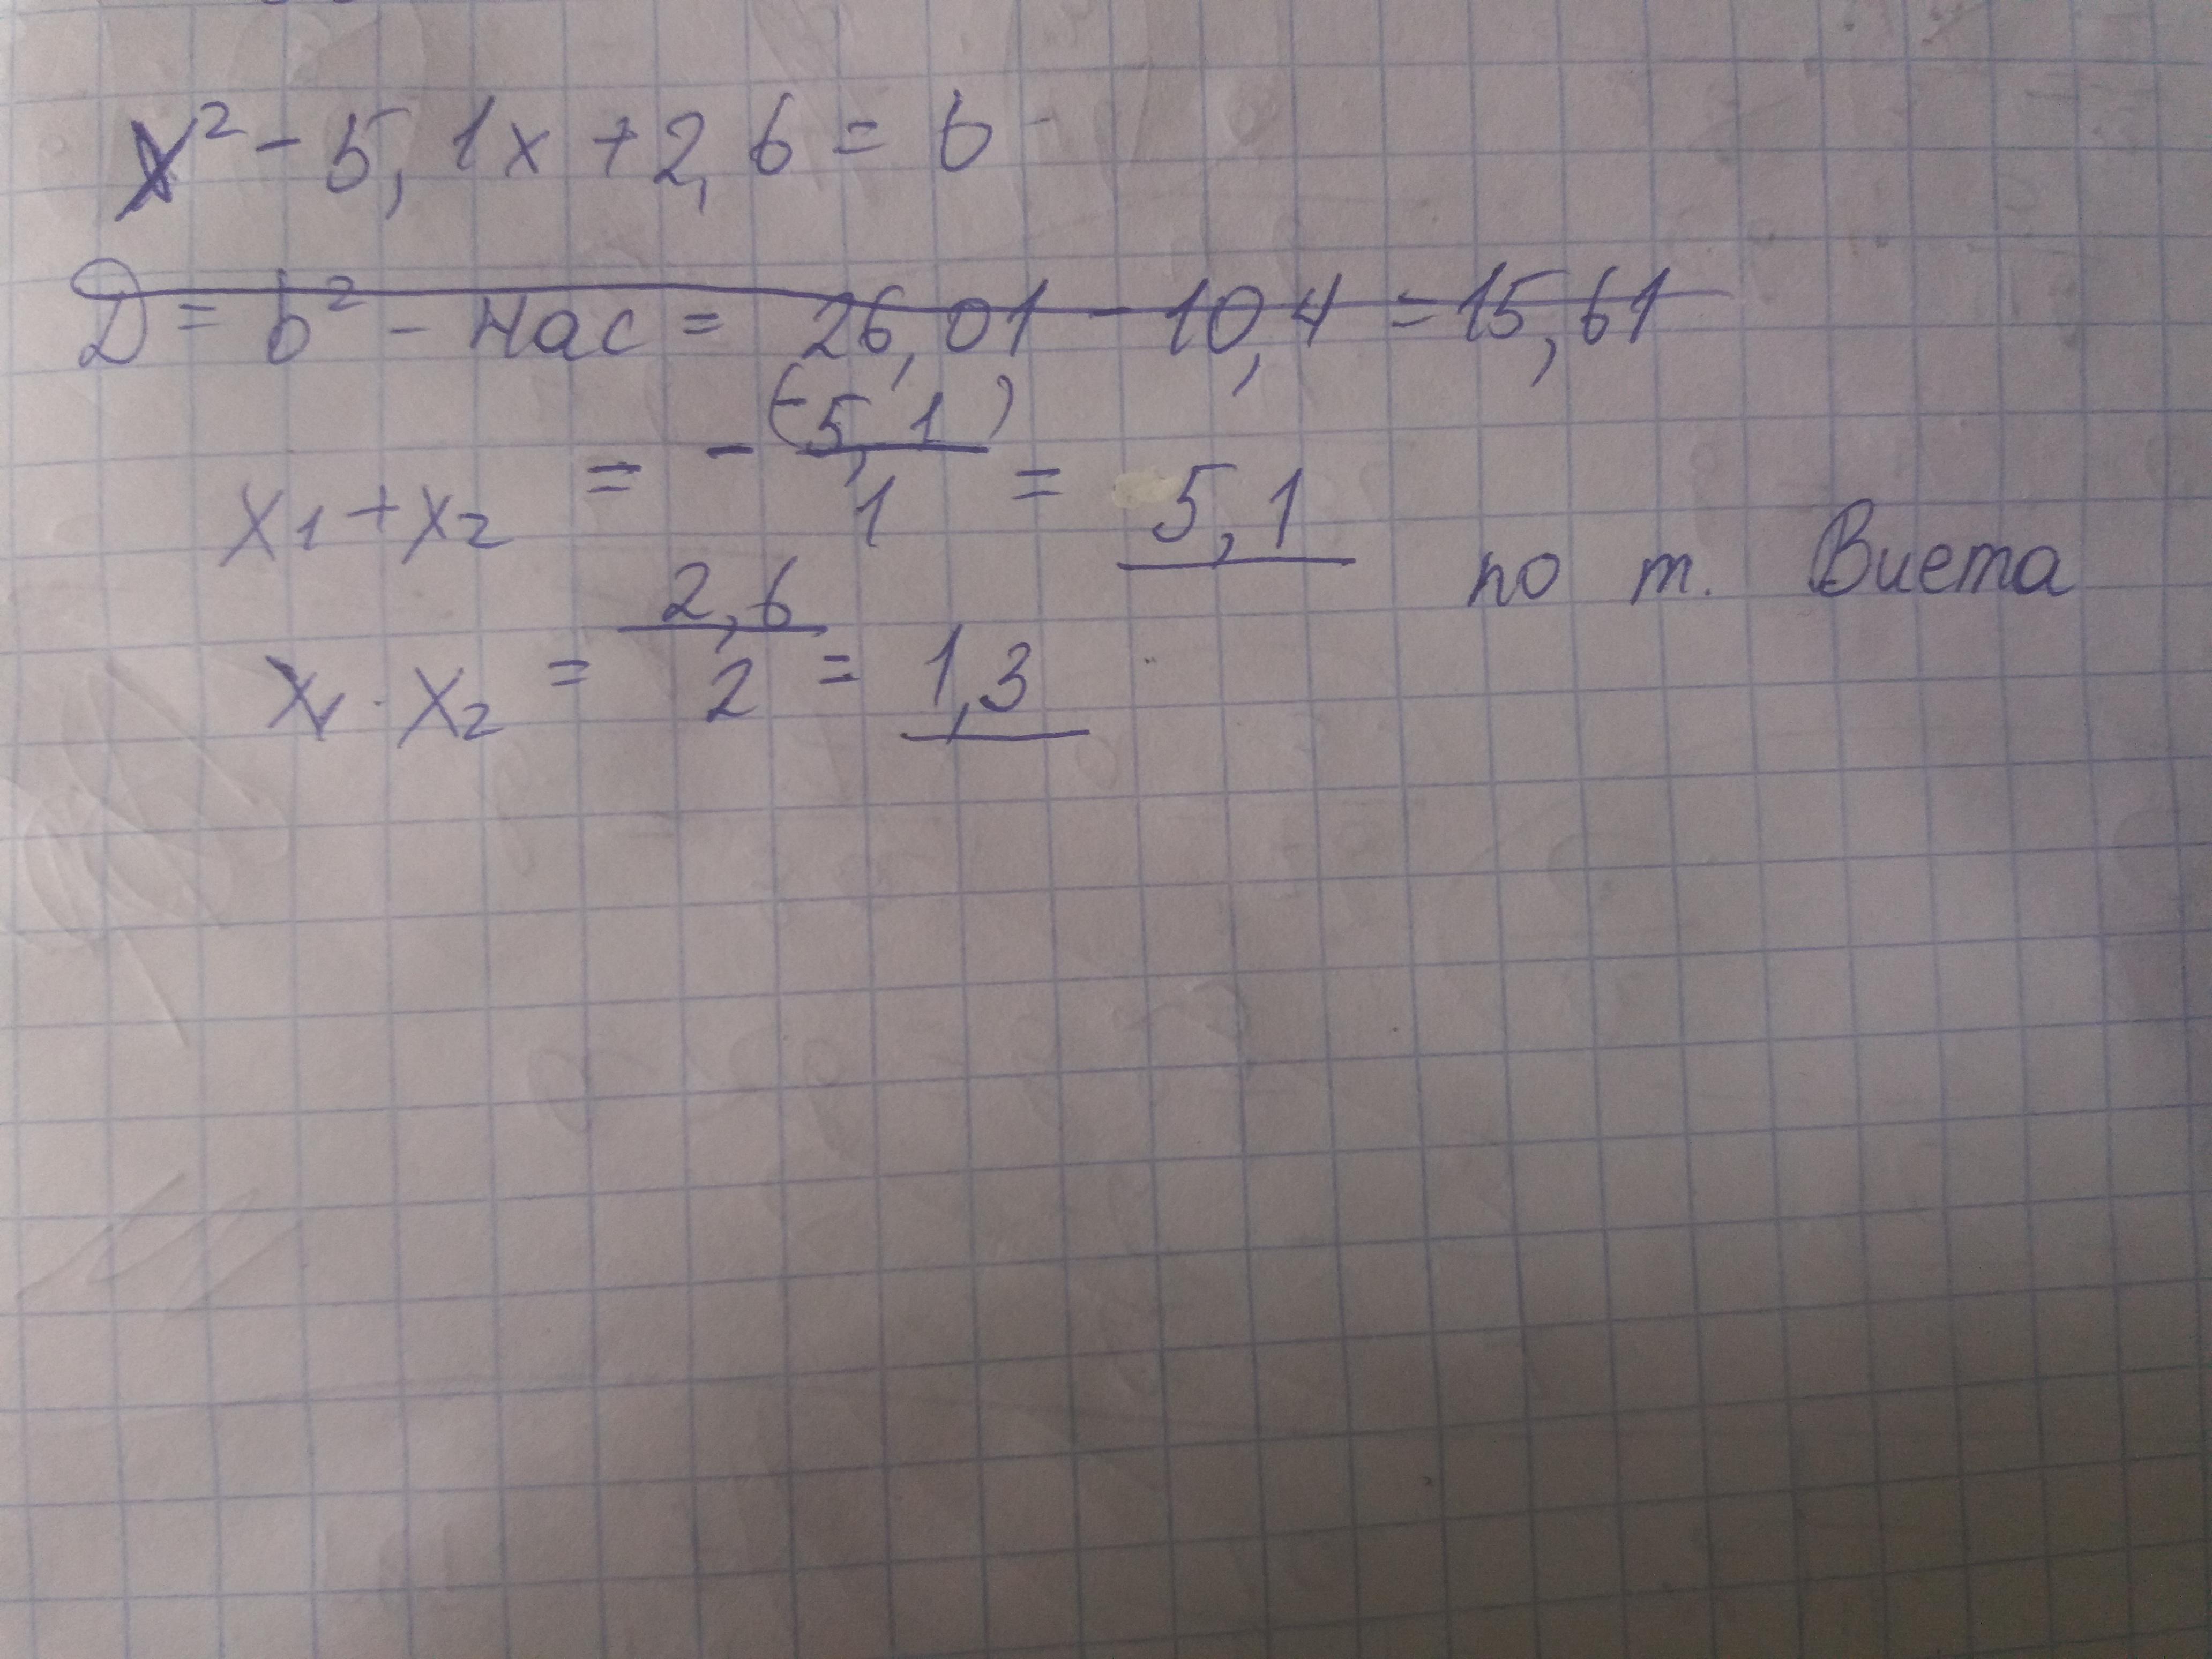 x² - 5,1x + 2,6 = 0
D = b² - 4ac = 26,01 - 10,4 = 15,61
x₁ + x₂ = - (-5,1)/1 = 5,1 по т. Виета
x₁ · x₂ = 2,6/2 = 1,3